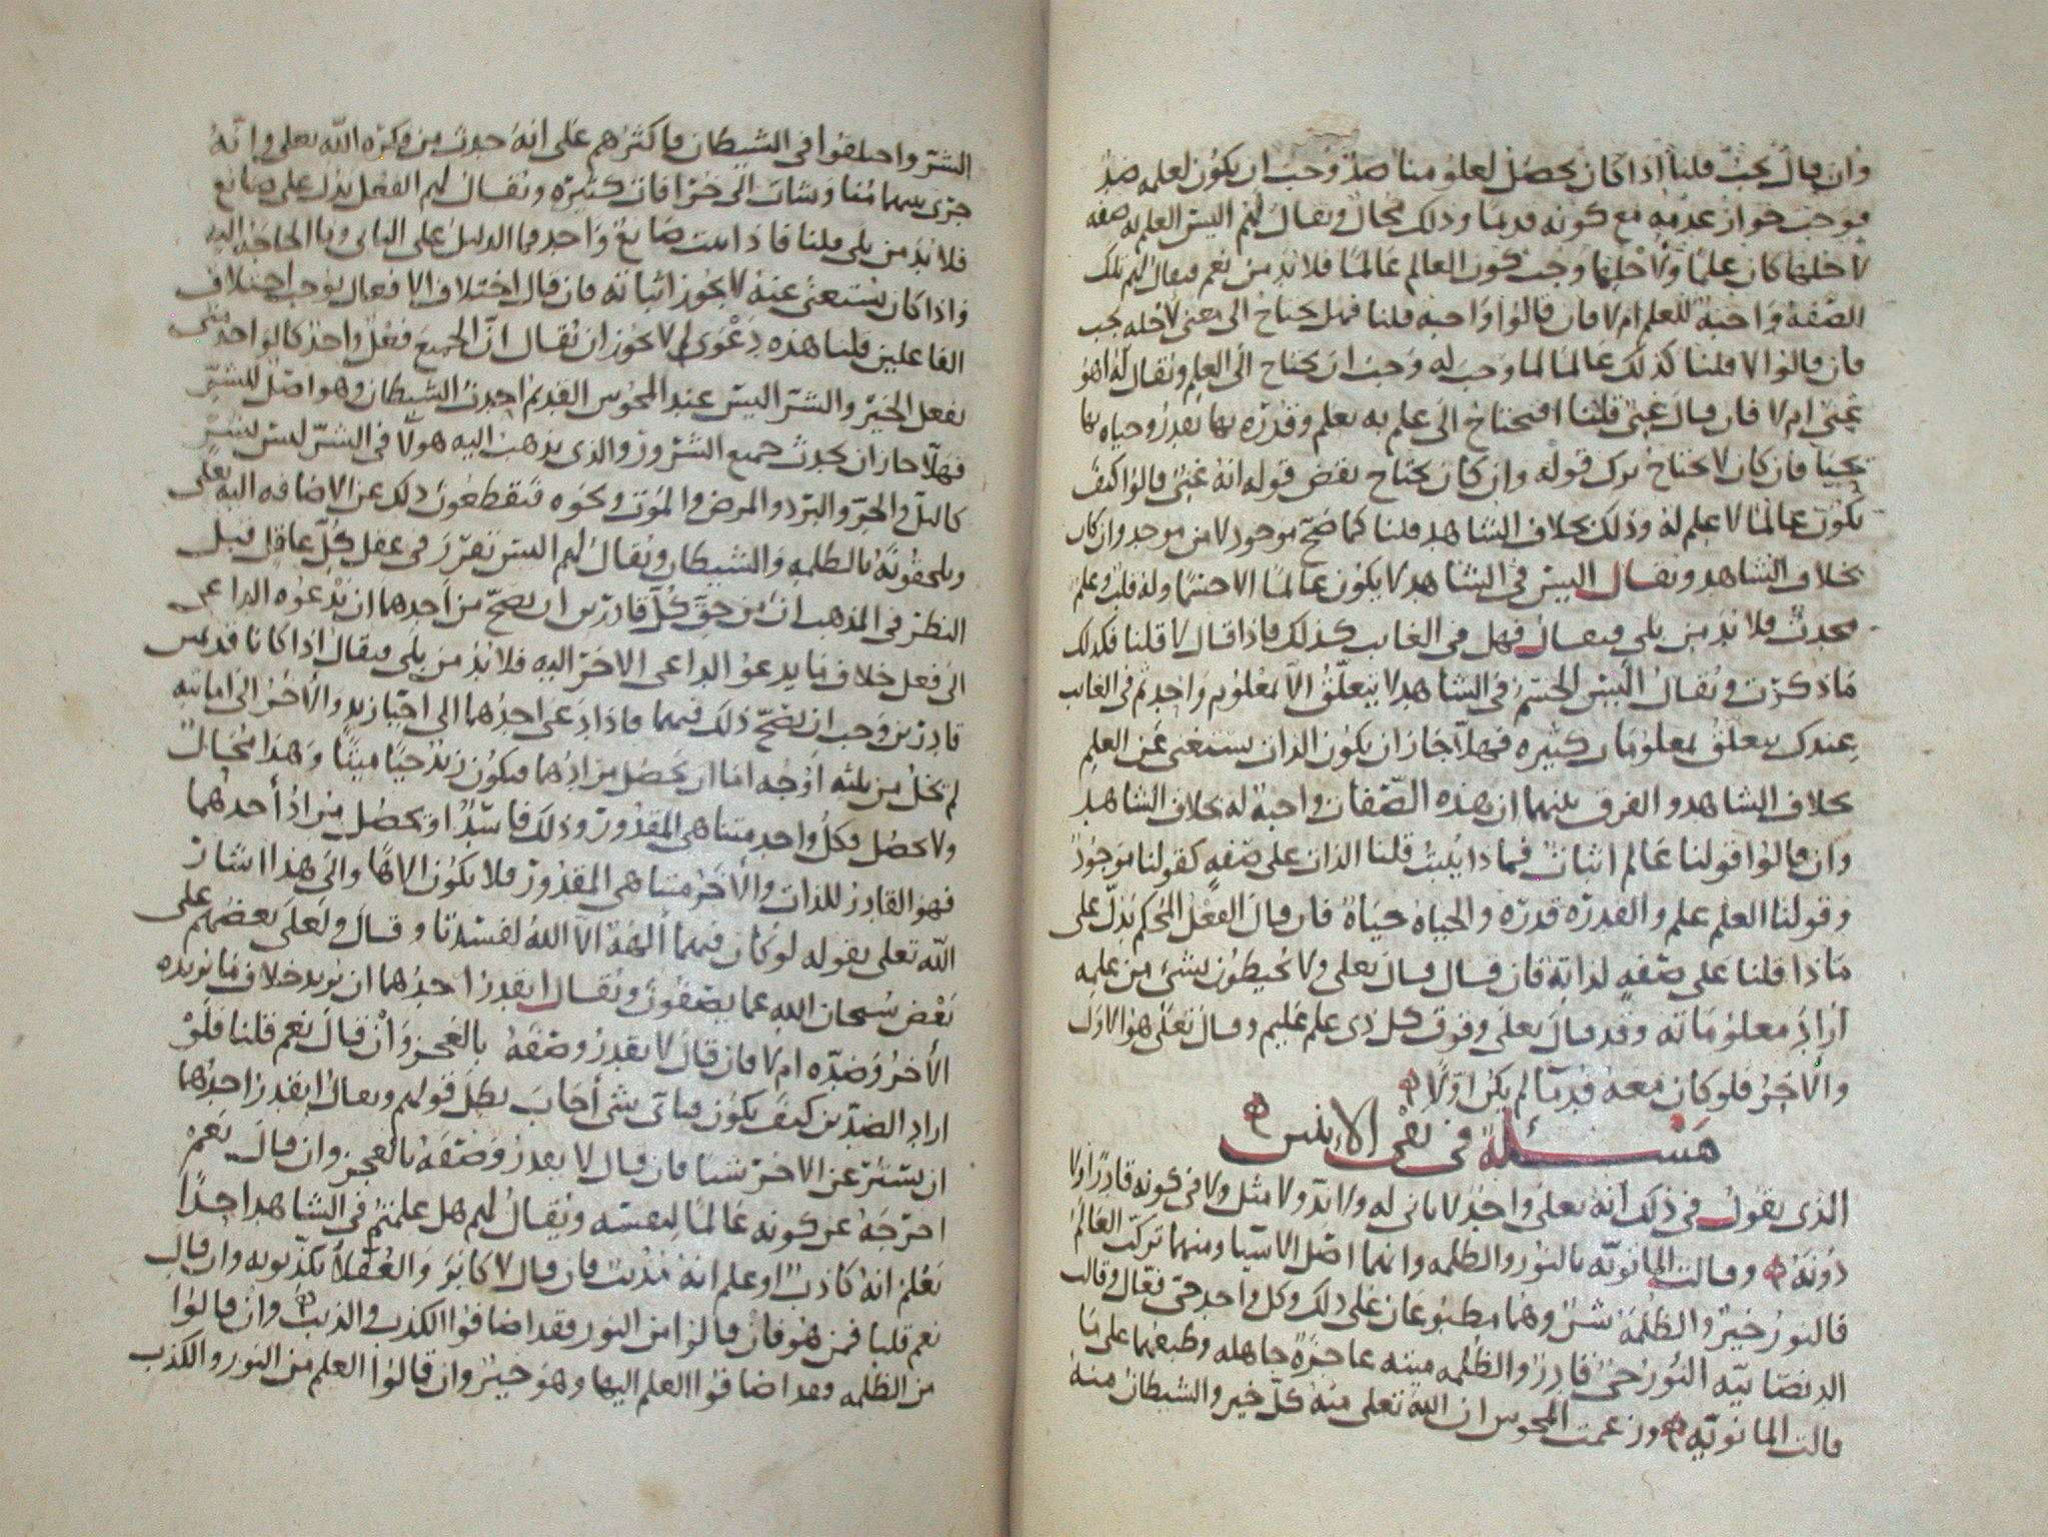 وان قال يجب قلنا اذا كان يحصل لعلومنا ضد وجب ان يكون لعلمه ضد
فوجب جواز عدمه مع كونه قديما وذلك محال ويقال لهم اليس العلم له صفه
لاجلها كان علما ولاجلها وجب كون العالم عالما فلا بد من نعم فيقال لهم تلك
الصفة واجبة للعلم ام لا فان قالوا واجبه قلنا فهل يحتاج الى معنى لاجله يجب
فان قالوا لا قلنا كذلك عالما لما وجب له وجب ان يحتاج الى العلم ويقال له اهو
غني ام لا فان قال غني قلنا افيحتاج الى علم به يعلم وقدره بها يقدر وحياه بها
يحيا فان كان لا يحتاج ترك قوله وان كان يحتاج نقض قوله انه غني قالوا كيف
يكون عالما لا علم له وذلك بخلاف الشاهد قلنا كما صح موجود لا من موجد وان كان
بخلاف الشاهد ويقال اليس في الشاهد لا يكون عالما الا جسما وله قلب وعلم
محدث فلا بد من بلى فيقال فهل في الغايب كذلك فاذا قال لا قلنا فكذلك
ما ذكرت ويقال اليس الجسم في الشاهد لا يتعلق الا بمعلوم واحد ثم في الغايب
عندك يتعلق بمعلومات كثيره فهلا جاز ان يكون الذات يستغنى عن العلم
بخلاف الشاهد والفرق بينهما ان هذه الصفات واجبة له بخلاف الشاهد
وان قالوا قولنا عالم اثبات فماذا يثبت قلنا الذات على صفه كقولنا موجود
وقولنا العلم علم والقدره قدره والحياه حياة فان قال الفعل المحكم يدل على
ماذا قلنا على صفه لذاته فان قال قال تعلى ولا يحيطون بشئ من علمه
اراد معلوماته وقد قال تعلى وفوق كل ذى علم عليم وقال تعلى هو الاول
والاخر فلو كان معه قديما لم يكن اولا
مسئلة في نفى الاثنين
الذى يقول في ذلك انه تعلى واحد لا ثانى له ولا ند ولا مثل ولا في كونه قادرا ولا
دونه وقالت المانويه بالنور والظلمه وانهما اصل الاشيا ومنهما تركب العالم
فالنور خير والظلمة شر وهما مطبوعان على ذلك وكل واحد حى فعال وقالت
الديصانيه النور حى قادر والظلمه ميته عاجزة جاهله وطبعهما على ما
قالت المانويه وزعمت المجوس ان الله تعلى منه كل خير والشيطان منه
الشر واختلفوا في الشيطان فاكثرهم على انه حدث من فكره الله تعلى وانه
جرى بينهما وشات الى خرافات كثيره ويقال لهم الفعل يدل على صانع
فلا بد من بلى قلنا فاذا ثبت صانع واحد فما الدليل على الثانى وما الحاجه اليه
واذا كان يستغنى عنه لا يجوز اثباته فان قال اختلاف الافعال يوجب اختلاف
الفاعلين قلنا هذه دعوى لم لا يجوز ان يقال ان الجميع فعل واحد كالواحد منا
يفعل الخير والشر اليس عند المجوس القديم احدث الشيطان وهو اصل للشر
فهلا جاز ان يحدث جميع الشرور والذى يذهب اليه هولا في الشر ليس بشر
كالليل والحر والبرد والمرض والموت ونحوه فيقطعون ذلك عن الاضافه اليه تعلى
ويلحقونه بالظلمه والشيطان ويقال لهم اليس تقرر في عقل كل عاقل قبل
النظر في المذهب ان من حق كل قادرين ان يصح من احدهما ان يدعوه الداعى
الى فعل خلاف ما يدعوا الداعى الاخر اليه فلا بد من بلى فيقال اذا كانا قديمين
قادرين وجب ان يصح ذلك فيهما فاذا دعى احدهما الى احيا زيد والاخر الى اماتته
لم يخل من ثلثه اوجه اما ان يحصل مرادهما فيكون زيد حيا ميتا وهذا محال
ولا يحصل فكل واحد متناهى المقدور وذلك فاسد او يحصل مراد احدهما
فهو القادر للذات والاخر متناهى المقدور فلا يكون الاها والى هذا اشار
الله تعلى بقوله لو كان فيهما الهة الا الله لفسدتا وقال ولعلى بعضهم على
بعض سبحان الله عما يصفون ويقال ايقدر احدهما ان يريد خلاف ما يريده
الاخر وضده ام لا فان قال لا يقدر وصفه بالعجز وان قال نعم قلنا فلو
اراد الضدين كيف يكون فباى شى اجاب بطل قولهم ويقال ايقدر احدهما
ان يستر عن الاخر شيا فان قال لا يقدر وصفه بالعجز وان قال نعم
اخرجه عن كونه عالما لنفسه ويقال لهم هل علمتم في الشاهد احدا
يعلم انه كاذب او علم انه مذنب فان قال لا كابر والعقلا يكذبونه وان قال
نعم قلنا فمن هو فان قالوا من النور فقد اضافوا الكذب والذنب وان قالوا
من الظلمه فقد اضافوا العلم اليها وهو خير وان قالوا العلم من النور والكذب